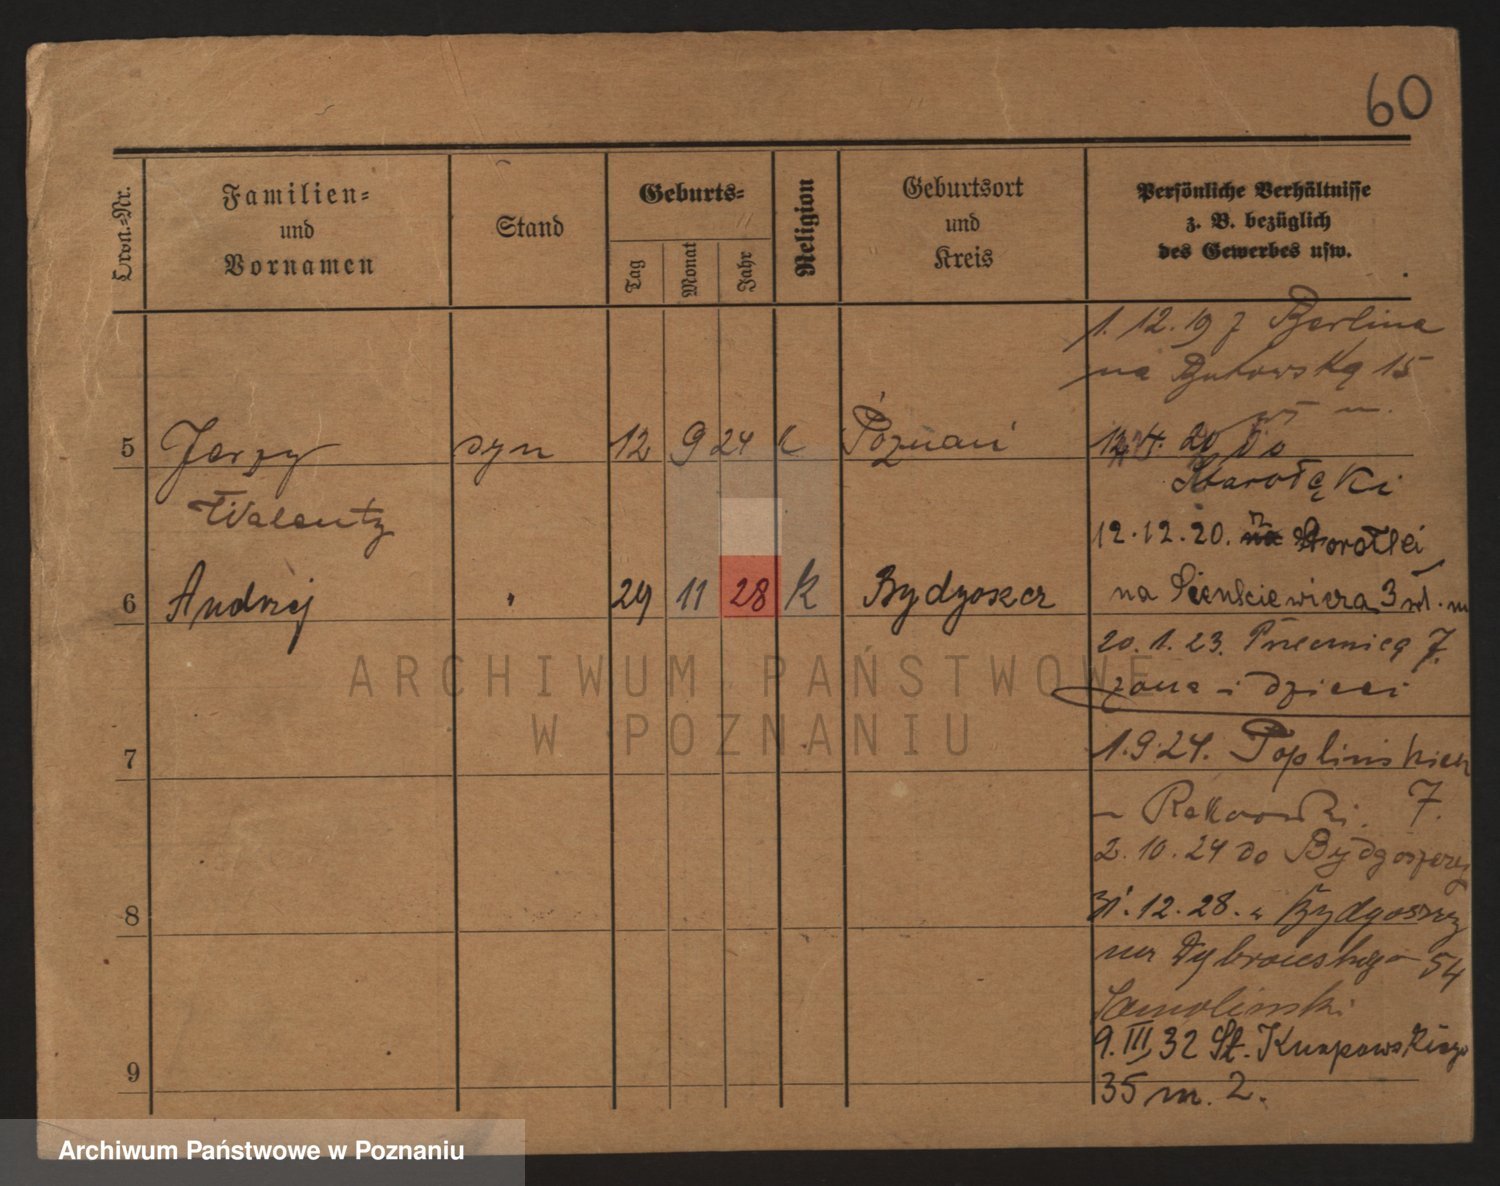 60
Lfde.-Nr.
Familien-
und
Vornamen
Stand
Geburts-
Tag
Monat
Jahr
Religion
Geburtsort
und
Kreis
Persönliche Verhältnisse
z. B. bezüglich
des Gewerbes usw.
1.12.19 z Berlina
na Bukowską 15
5 Jerzy syn 12 9 24 k Poznań
20 do
Starołęki
Walenty
12.12.20. z Starołęki
6 Andrzej " 29 11 28 k Bydgoszcz
na Sienkiewicza 3
20.1.23. 7.
żona i dzieci
ARCHIWUM PAŃSTWOWE
W POZNANIU
7
1.9.24. Poplińskich
7.
2.10.24 do Bydgoszczy
8
31.12.28. z Bydgoszczy
na Dąbrowskiego 54
9.III.32 St. Knapowskiego
9
35 m. 2.
Archiwum Państwowe w Poznaniu